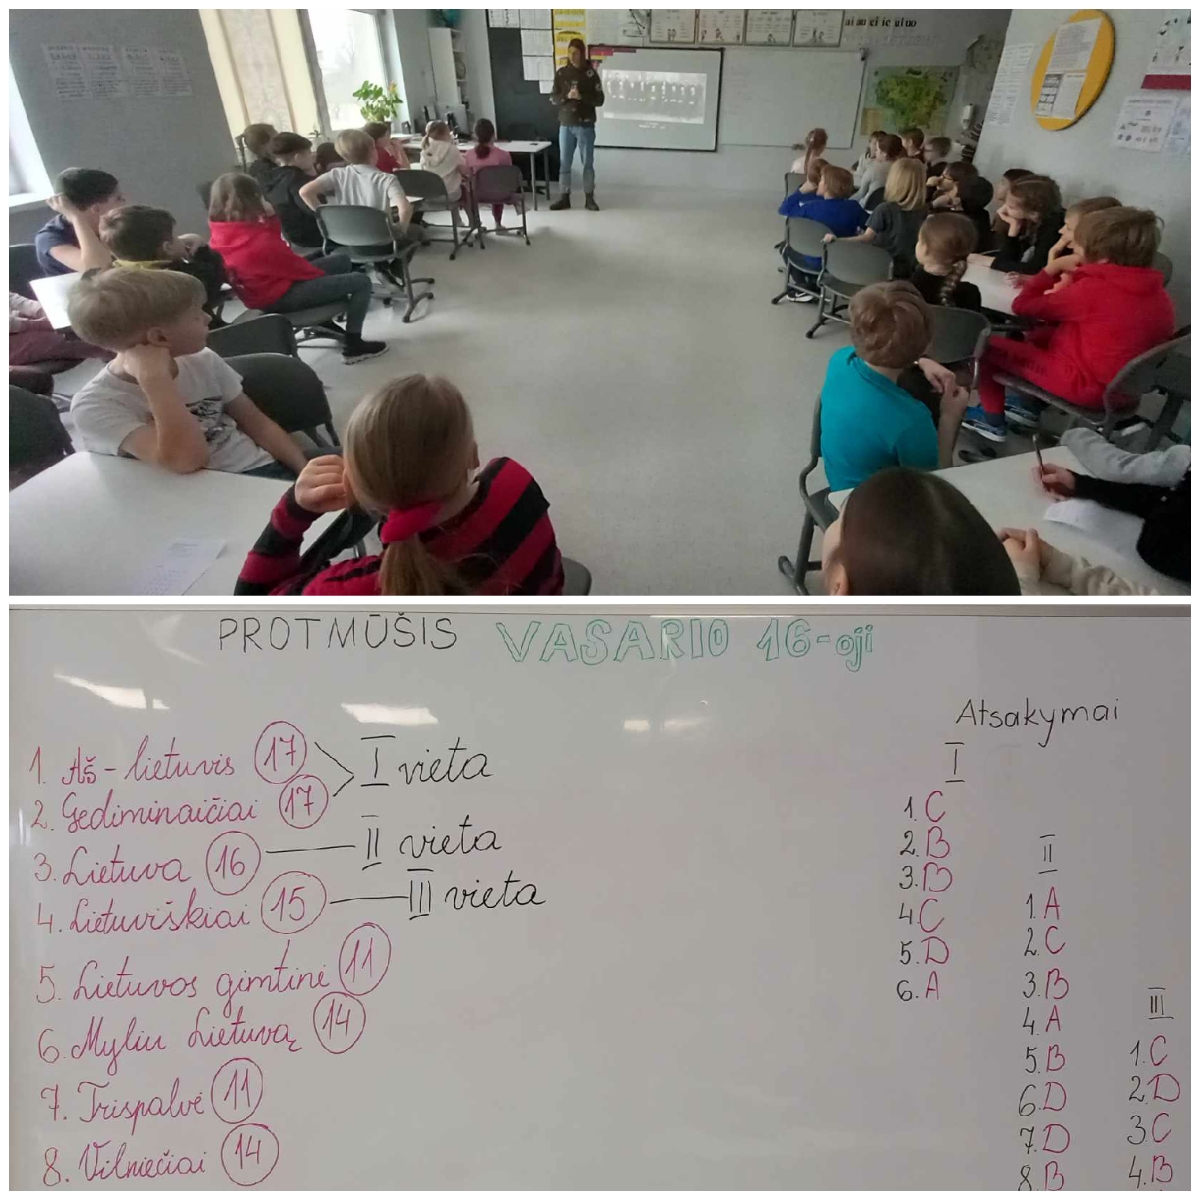 PROTMŪŠIS VASARIO 16-oji
1. Aš - lietuvis 17
2. Gediminaičiai 17
I vieta
3. Lietuva 16
II vieta
4. Lietuviškiai 15
III vieta
5. Lietuvos gimtinė 11
6. Myliu Lietuvą 14
7. Trispalvė 11
8. Vilniečiai 14
Atsakymai
I
1. C
2. B
3. B
4. C
5. D
6. A
II
1. A
2. C
3. B
4. A
5. B
6. D
7. D
8. B
III
1. C
2. D
3. C
4. B